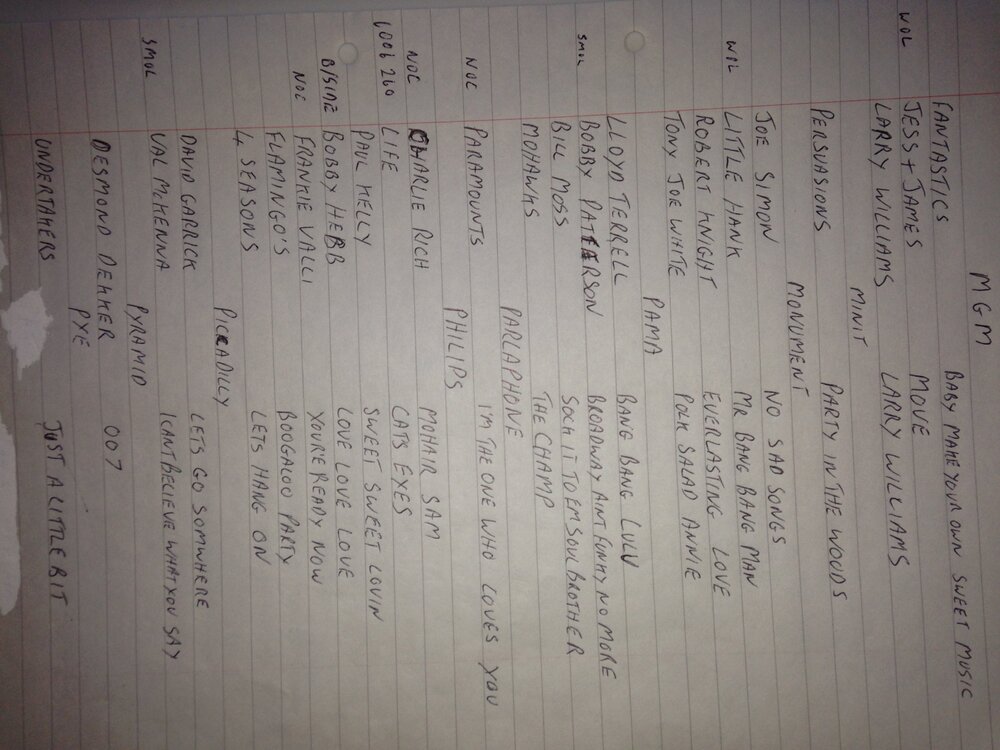 MGM
FANTASTICS BABY MAKE YOUR OWN SWEET MUSIC
WOL JESS + JAMES MOVE
LARRY WILLIAMS LARRY WILLIAMS
MINIT
PERSUASIONS PARTY IN THE WOODS
MONUMENT
JOE SIMON NO SAD SONGS
WOL LITTLE HANK MR BANG BANG MAN
ROBERT KNIGHT EVERLASTING LOVE
TONY JOE WHITE POLK SALAD ANNIE
PAMA
LLOYD TERRELL BANG BANG LULU
BOBBY PATTERSON BROADWAY AINT FUNKY NO MORE
SMOL BILL MOSS SOCK IT TO EM SOUL BROTHER
MOHAWKS THE CHAMP
PARLAPHONE
NOC PARAMOUNTS I'M THE ONE WHO LOVES YOU
PHILIPS
NOC CHARLIE RICH MOHAIR SAM
6006 260 LIFE CATS EYES
PAUL KELLY SWEET SWEET LOVIN
B/SIDE BOBBY HEBB LOVE LOVE LOVE
NOC FRANKIE VALLI YOU'RE READY NOW
FLAMINGO'S BOOGALOO PARTY
4 SEASONS LETS HANG ON
PICKADILLY
DAVID GARRICK LETS GO SOMWHERE
SMOL VAL McKENNA I CANT BELIEVE WHAT YOU SAY
PYRAMID
DESMOND DEKKER 007
PYE
UNDERTAKERS JUST A LITTLE BIT